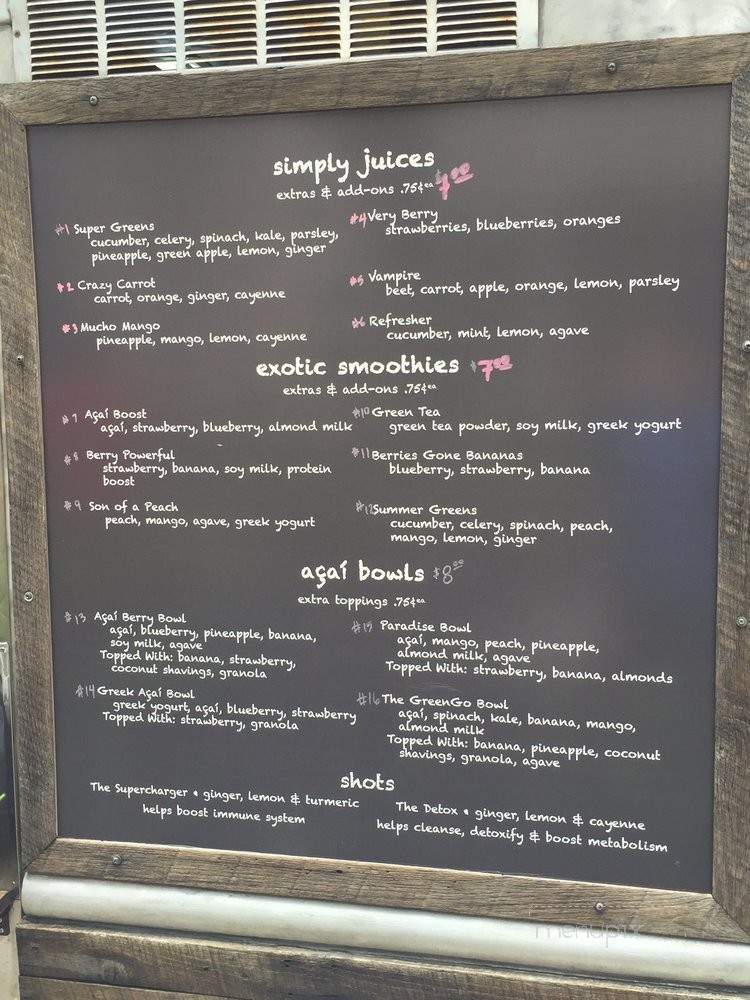 simply juices
extras & add-ons .75¢ea $7.00
#1 Super Greens
cucumber, celery, spinach, kale, parsley,
pineapple, green apple, lemon, ginger
#2 Crazy Carrot
carrot, orange, ginger, cayenne
#3 Mucho Mango
pineapple, mango, lemon, cayenne
#4 Very Berry
strawberries, blueberries, oranges
#5 Vampire
beet, carrot, apple, orange, lemon, parsley
#6 Refresher
cucumber, mint, lemon, agave
exotic smoothies $7.00
extras & add-ons .75¢ea
#7 Açaí Boost
açaí, strawberry, blueberry, almond milk
#8 Berry Powerful
strawberry, banana, soy milk, protein
boost
#9 Son of a Peach
peach, mango, agave, greek yogurt
#10 Green Tea
green tea powder, soy milk, greek yogurt
#11 Berries Gone Bananas
blueberry, strawberry, banana
#12 Summer Greens
cucumber, celery, spinach, peach,
mango, lemon, ginger
açaí bowls $8.00
extra toppings .75¢ea
#13 Açaí Berry Bowl
açaí, blueberry, pineapple, banana,
soy milk, agave
Topped With: banana, strawberry,
coconut shavings, granola
#14 Greek Açaí Bowl
greek yogurt, açaí, blueberry, strawberry
Topped With: strawberry, granola
#15 Paradise Bowl
açaí, mango, peach, pineapple,
almond milk, agave
Topped With: strawberry, banana, almonds
#16 The GreenGo Bowl
açaí, spinach, kale, banana, mango,
almond milk
Topped With: banana, pineapple, coconut
shavings, granola, agave
shots
The Supercharger • ginger, lemon & turmeric
helps boost immune system
The Detox • ginger, lemon & cayenne
helps cleanse, detoxify & boost metabolism
menupix